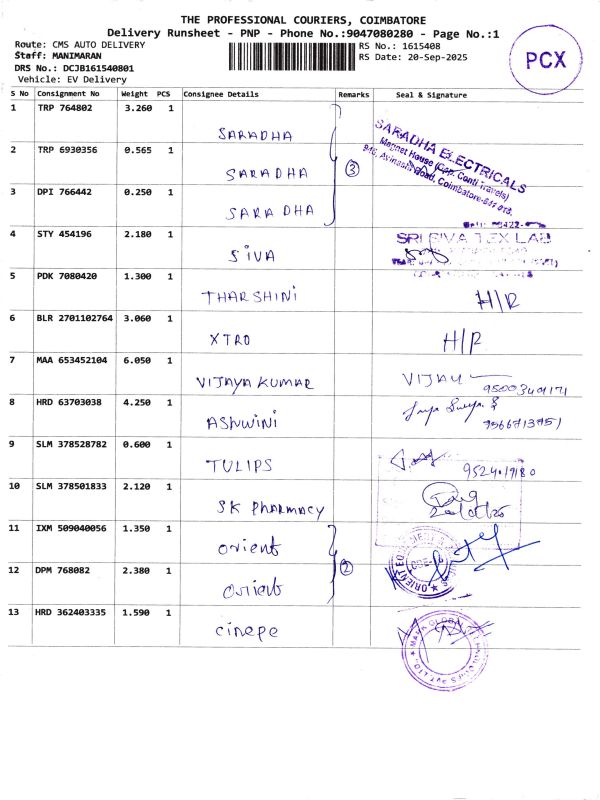 THE PROFESSIONAL COURIERS, COIMBATORE
Delivery Runsheet - PNP - Phone No.:9047080280 - Page No.:1
Route: CMS AUTO DELIVERY
Staff: MANIMARAN
DRS No.: DCJB161540801
Vehicle: EV Delivery
RS No.: 1615408
RS Date: 20-Sep-2025
PCX
S No Consignment No Weight PCS Consignee Details Remarks Seal & Signature
1 TRP 764802 3.260 1 SARADHA
2 TRP 6930356 0.565 1 SARADHA 3
SARADHA ELECTRICALS
Magnet House (Opp. Conti Travels)
Avinashi Road, Coimbatore-641 018.
3 DPI 766442 0.250 1 SARADHA
4 STY 454196 2.180 1 SIVA SRI SIVA TEX LAB
5 PDK 7080420 1.300 1 THARSHINI H/R
6 BLR 2701102764 3.060 1 XTRO H/R
7 MAA 653452104 6.050 1 VIJAYA KUMAR VIJAY
8 HRD 63703038 4.250 1 ASHWINI
9 SLM 378528782 0.600 1 TULIPS
10 SLM 378501833 2.120 1 SK PHARMACY
11 IXM 509040056 1.350 1 orient
12 DPM 768082 2.380 1 orient 2
13 HRD 362403335 1.590 1 cinepe